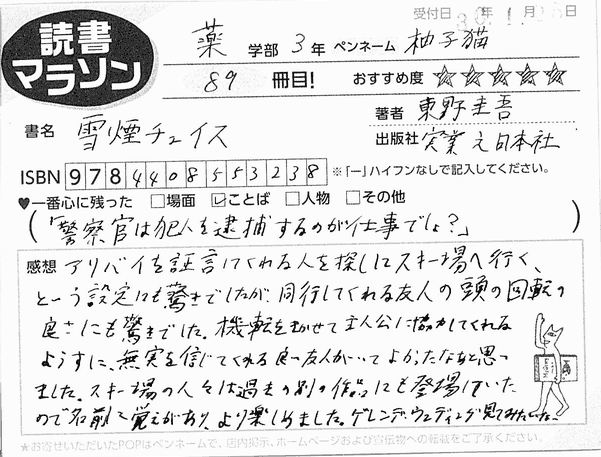 受付日 30年1月25日
読書
マラソン
薬 学部 3年 ペンネーム 柚子猫
89 冊目! おすすめ度 ☆☆☆☆☆
書名 雪煙チェイス
著者 東野圭吾
出版社 実業之日本社
ISBN 9784408553238 ※「ー」ハイフンなしで記入してください。
♥一番心に残った □場面 ☑ことば □人物 □その他
(「警察官は犯人を逮捕するのが仕事でしょ?」)
感想 アリバイを証言してくれる人を探しにスキー場へ行く、
という設定にも驚きでしたが、同行してくれる友人の頭の回転の
良さにも驚きでした。機転をきかせて主人公に協力してくれる
ようすに、無実を信じてくれる良い友人がいてよかったなあと思い
ました。スキー場の人々は過去の別の作品にも登場していた
ので名前に覚えがあり、より楽しめました。ゲレンデウェディング見てみたいな。
★お寄せいただいたPOPはペンネームで、店内掲示、ホームページおよび宣伝物への転載をご了承ください。